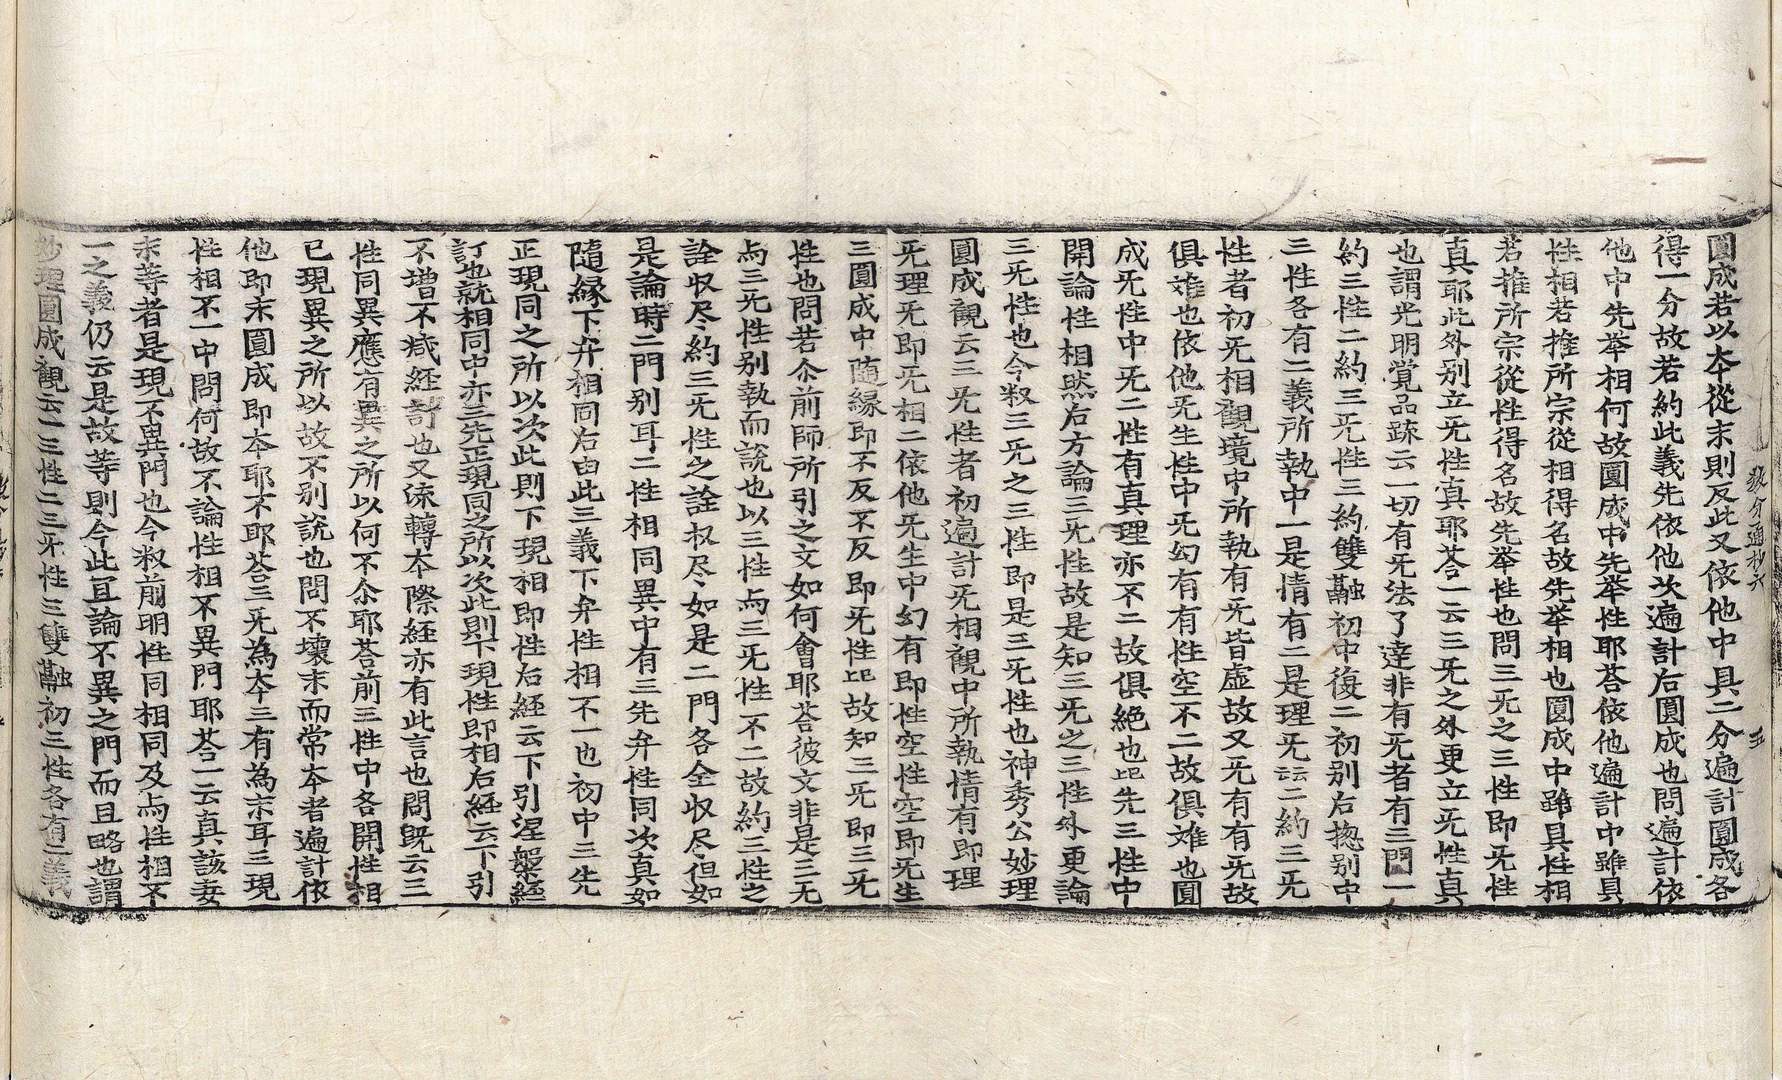 教分通抄六　五
圓成若以本從末則反此又依他中具二分遍計圓成各
得一分故若約此義先依他次遍計后圓成也問遍計依
他中先举相何故圓成中先举性耶荅依他遍計中雖具
性相若推所宗從相得名故先举相也圓成中雖具性相
若推所宗從性得名故先举性也問三旡之三性即旡性
真耶此外别立旡性真耶荅一云三旡之外更立旡性真
也謂光明覚品疏云一切有旡法了達非有旡者有三門一
約三性二約三旡性三約雙融初中復二初别后揔别中
三性各有二義所執中一是情有二是理旡云云二約三旡
性者初旡相觀境中所執有旡皆虛故又旡有有旡故
俱难也依他旡生性中旡幻有有性空不二故俱难也圓
成旡性中旡二性有真理亦不二故俱絶也比先三性中
開論性相然后方論三旡性故是知三旡之三性外更論
三旡性也今叙三旡之三性即是三旡性也神秀公妙理
圓成觀云三旡性者初遍計旡相觀中所執情有即理
旡理旡即旡相二依他旡生中幻有即性空性空即旡生
三圓成中随緣即不反不反即旡性比故知三旡即三旡
性也問若尒前師所引之文如何會耶荅彼文非是三旡
与三旡性别執而說也以三性与三旡性不二故約三性之
詮収尽約三旡性之詮叔尽如是二門各全収尽但如
是論時二門别耳二性相同異中有三先弁性同次真如
隨緣下弁相同后由此三義下弁性相不一也初中三先
正現同之所以次此則下現相即性后経云下引涅槃経
訂也就相同中亦三先正現同之所以次此則下現性即相后経云下引
不增不减経訂也又流轉本際経亦有此言也問旣云三
性同異應有異之所以何不尒耶荅前三性中各開性相
已現異之所以故不别說也問不壞末而常本者遍計依
他即末圓成即本耶不耶荅三旡為本三有為末耳三現
性相不一中問何故不論性相不異門耶荅一云真該妄
末等者是現不異門也今叙前明性同相同及与性相不
一之義仍云是故等則今此亘論不異之門而且略也謂
妙理圓成觀云一三性二三旡性三雙融初三性各有二義